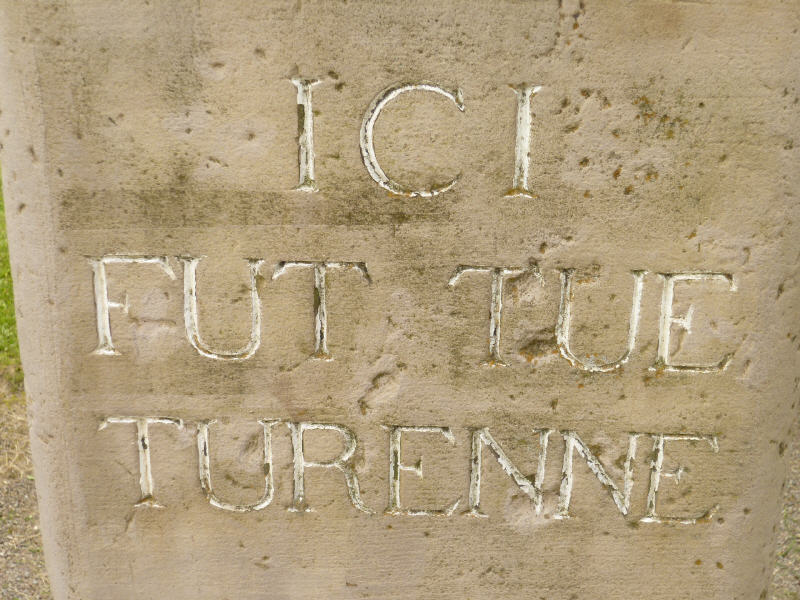 ICI
FUT TUE
TURENNE